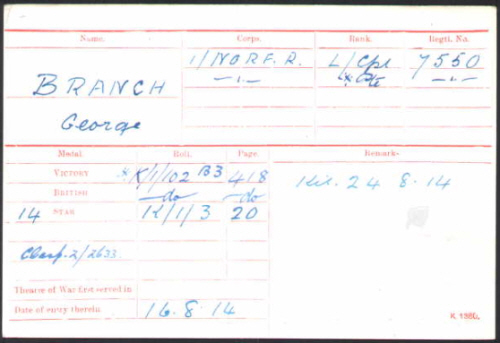 Name. Corps. Rank. Regtl. No.
BRANCH 1/NORF. R. L/Cpl 7550
George —„— —„—
Medal. Roll. Page. Remarks
VICTORY * K/1/102 B3 418 Kil. 24 8.14
BRITISH —do— —do—
14 STAR K/1/3 20
Clasp. 2/2633
Theatre of War first served in
Date of entry therein 16.8.14
K 1380.